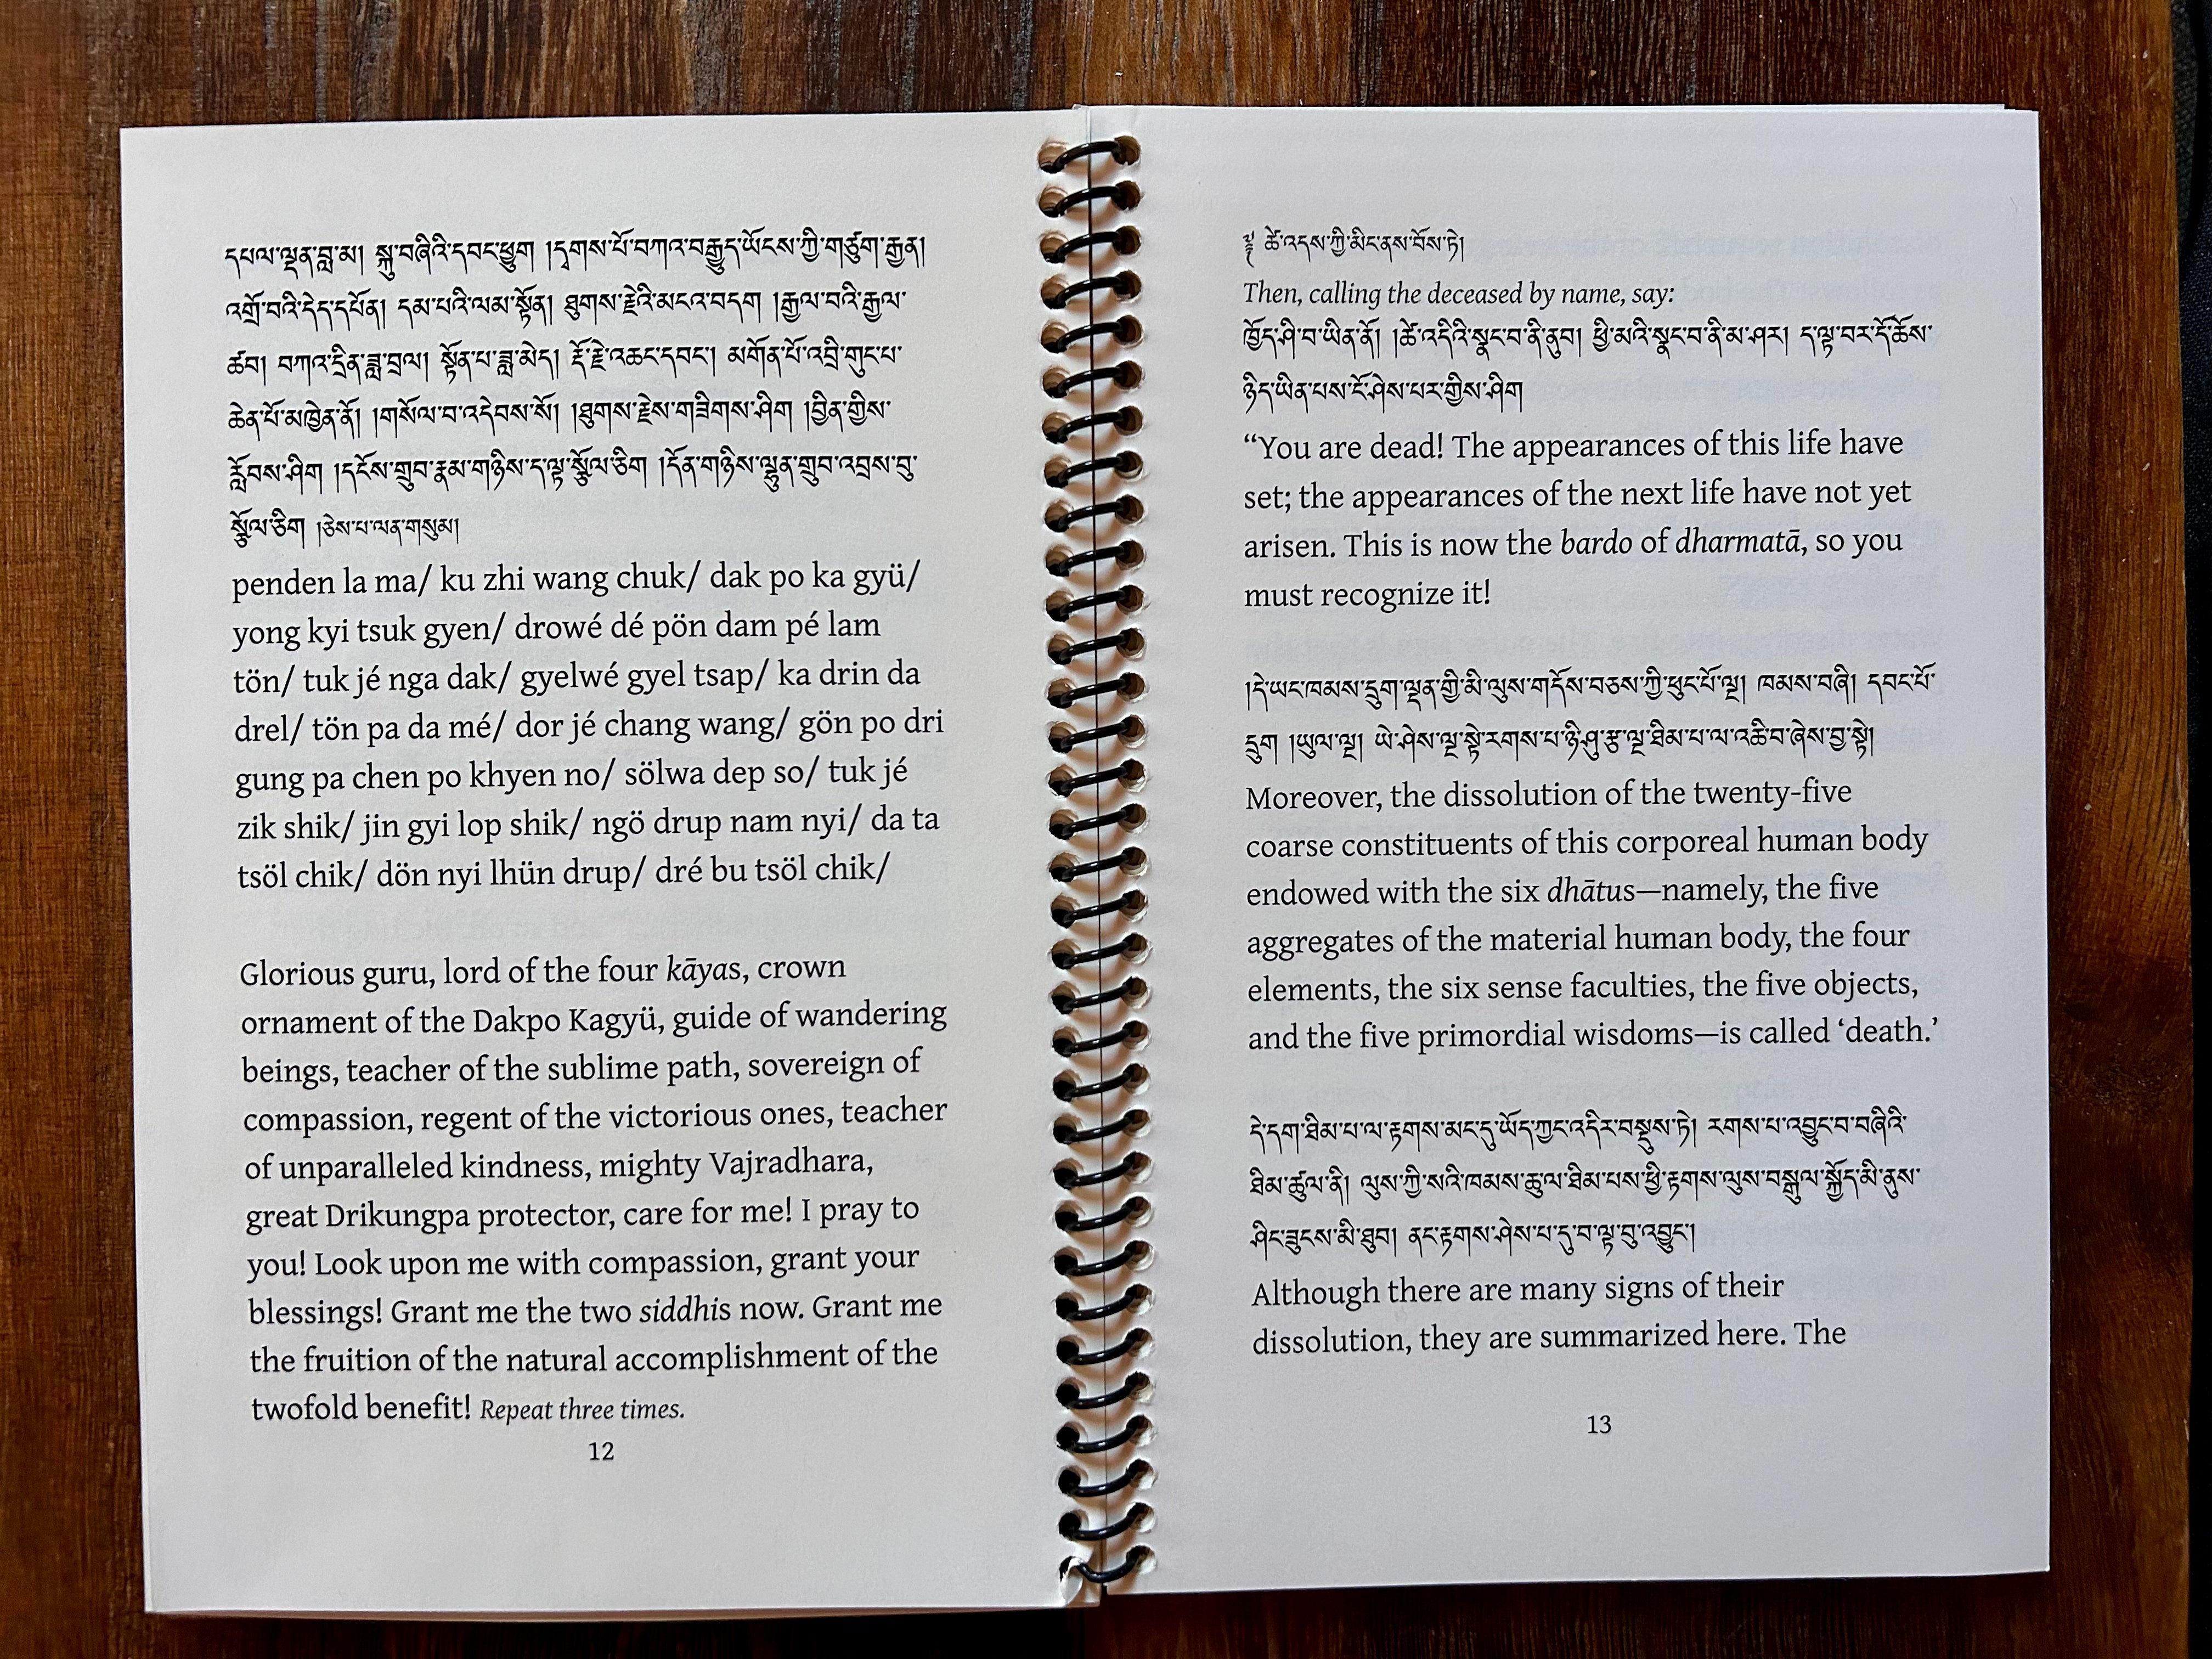 དཔལ་ལྡན་བླ་མ། སྐུ་བཞིའི་དབང་ཕྱུག །དྭགས་པོ་བཀའ་བརྒྱུད་ཡོངས་ཀྱི་གཙུག་རྒྱན།
འགྲོ་བའི་དེད་དཔོན། དམ་པའི་ལམ་སྟོན། ཐུགས་རྗེའི་མངའ་བདག །རྒྱལ་བའི་རྒྱལ་
ཚབ། བཀའ་དྲིན་ཟླ་བྲལ། སྟོན་པ་ཟླ་མེད། རྡོ་རྗེ་འཆང་དབང་། མགོན་པོ་འབྲི་གུང་པ་
ཆེན་པོ་མཁྱེན་ནོ། །གསོལ་བ་འདེབས་སོ། །ཐུགས་རྗེས་གཟིགས་ཤིག །བྱིན་གྱིས་
རློབས་ཤིག །དངོས་གྲུབ་རྣམ་གཉིས་ད་ལྟ་སྩོལ་ཅིག །དོན་གཉིས་ལྷུན་གྲུབ་འབྲས་བུ་
སྩོལ་ཅིག །ཅེས་པ་ལན་གསུམ།
penden la ma/ ku zhi wang chuk/ dak po ka gyü/
yong kyi tsuk gyen/ drowé dé pön dam pé lam
tön/ tuk jé nga dak/ gyelwé gyel tsap/ ka drin da
drel/ tön pa da mé/ dor jé chang wang/ gön po dri
gung pa chen po khyen no/ sölwa dep so/ tuk jé
zik shik/ jin gyi lop shik/ ngö drup nam nyi/ da ta
tsöl chik/ dön nyi lhün drup/ dré bu tsöl chik/
Glorious guru, lord of the four kāyas, crown
ornament of the Dakpo Kagyü, guide of wandering
beings, teacher of the sublime path, sovereign of
compassion, regent of the victorious ones, teacher
of unparalleled kindness, mighty Vajradhara,
great Drikungpa protector, care for me! I pray to
you! Look upon me with compassion, grant your
blessings! Grant me the two siddhis now. Grant me
the fruition of the natural accomplishment of the
twofold benefit! Repeat three times.
12
༈ ཚེ་འདས་ཀྱི་མིང་ནས་བོས་ཏེ།
Then, calling the deceased by name, say:
ཁྱོད་ཤི་བ་ཡིན་ནོ། །ཚེ་འདིའི་སྣང་བ་ནི་ནུབ། ཕྱི་མའི་སྣང་བ་ནི་མ་ཤར། ད་ལྟ་བར་དོ་ཆོས་
ཉིད་ཡིན་པས་ངོ་ཤེས་པར་གྱིས་ཤིག
“You are dead! The appearances of this life have
set; the appearances of the next life have not yet
arisen. This is now the bardo of dharmatā, so you
must recognize it!
།དེ་ཡང་ཁམས་དྲུག་ལྡན་གྱི་མི་ལུས་གདོས་བཅས་ཀྱི་ཕུང་པོ་ལྔ། ཁམས་བཞི། དབང་པོ་
དྲུག །ཡུལ་ལྔ། ཡེ་ཤེས་ལྔ་སྟེ་རགས་པ་ཉི་ཤུ་རྩ་ལྔ་ཐིམ་པ་ལ་འཆི་བ་ཞེས་བྱ་སྟེ།
Moreover, the dissolution of the twenty-five
coarse constituents of this corporeal human body
endowed with the six dhātus—namely, the five
aggregates of the material human body, the four
elements, the six sense faculties, the five objects,
and the five primordial wisdoms—is called ‘death.’
དེ་དག་ཐིམ་པ་ལ་རྟགས་མང་དུ་ཡོད་ཀྱང་འདིར་བསྡུས་ཏེ། རགས་པ་འབྱུང་བ་བཞིའི་
ཐིམ་ཚུལ་ནི། ལུས་ཀྱི་སའི་ཁམས་ཆུ་ལ་ཐིམ་པས་ཕྱི་རྟགས་ལུས་བསྒུལ་སྐྱོད་མི་ནུས་
ཤིང་ཟུངས་མི་ཐུབ། ནང་རྟགས་ཤེས་པ་དུ་བ་ལྟ་བུ་འབྱུང་།
Although there are many signs of their
dissolution, they are summarized here. The
13